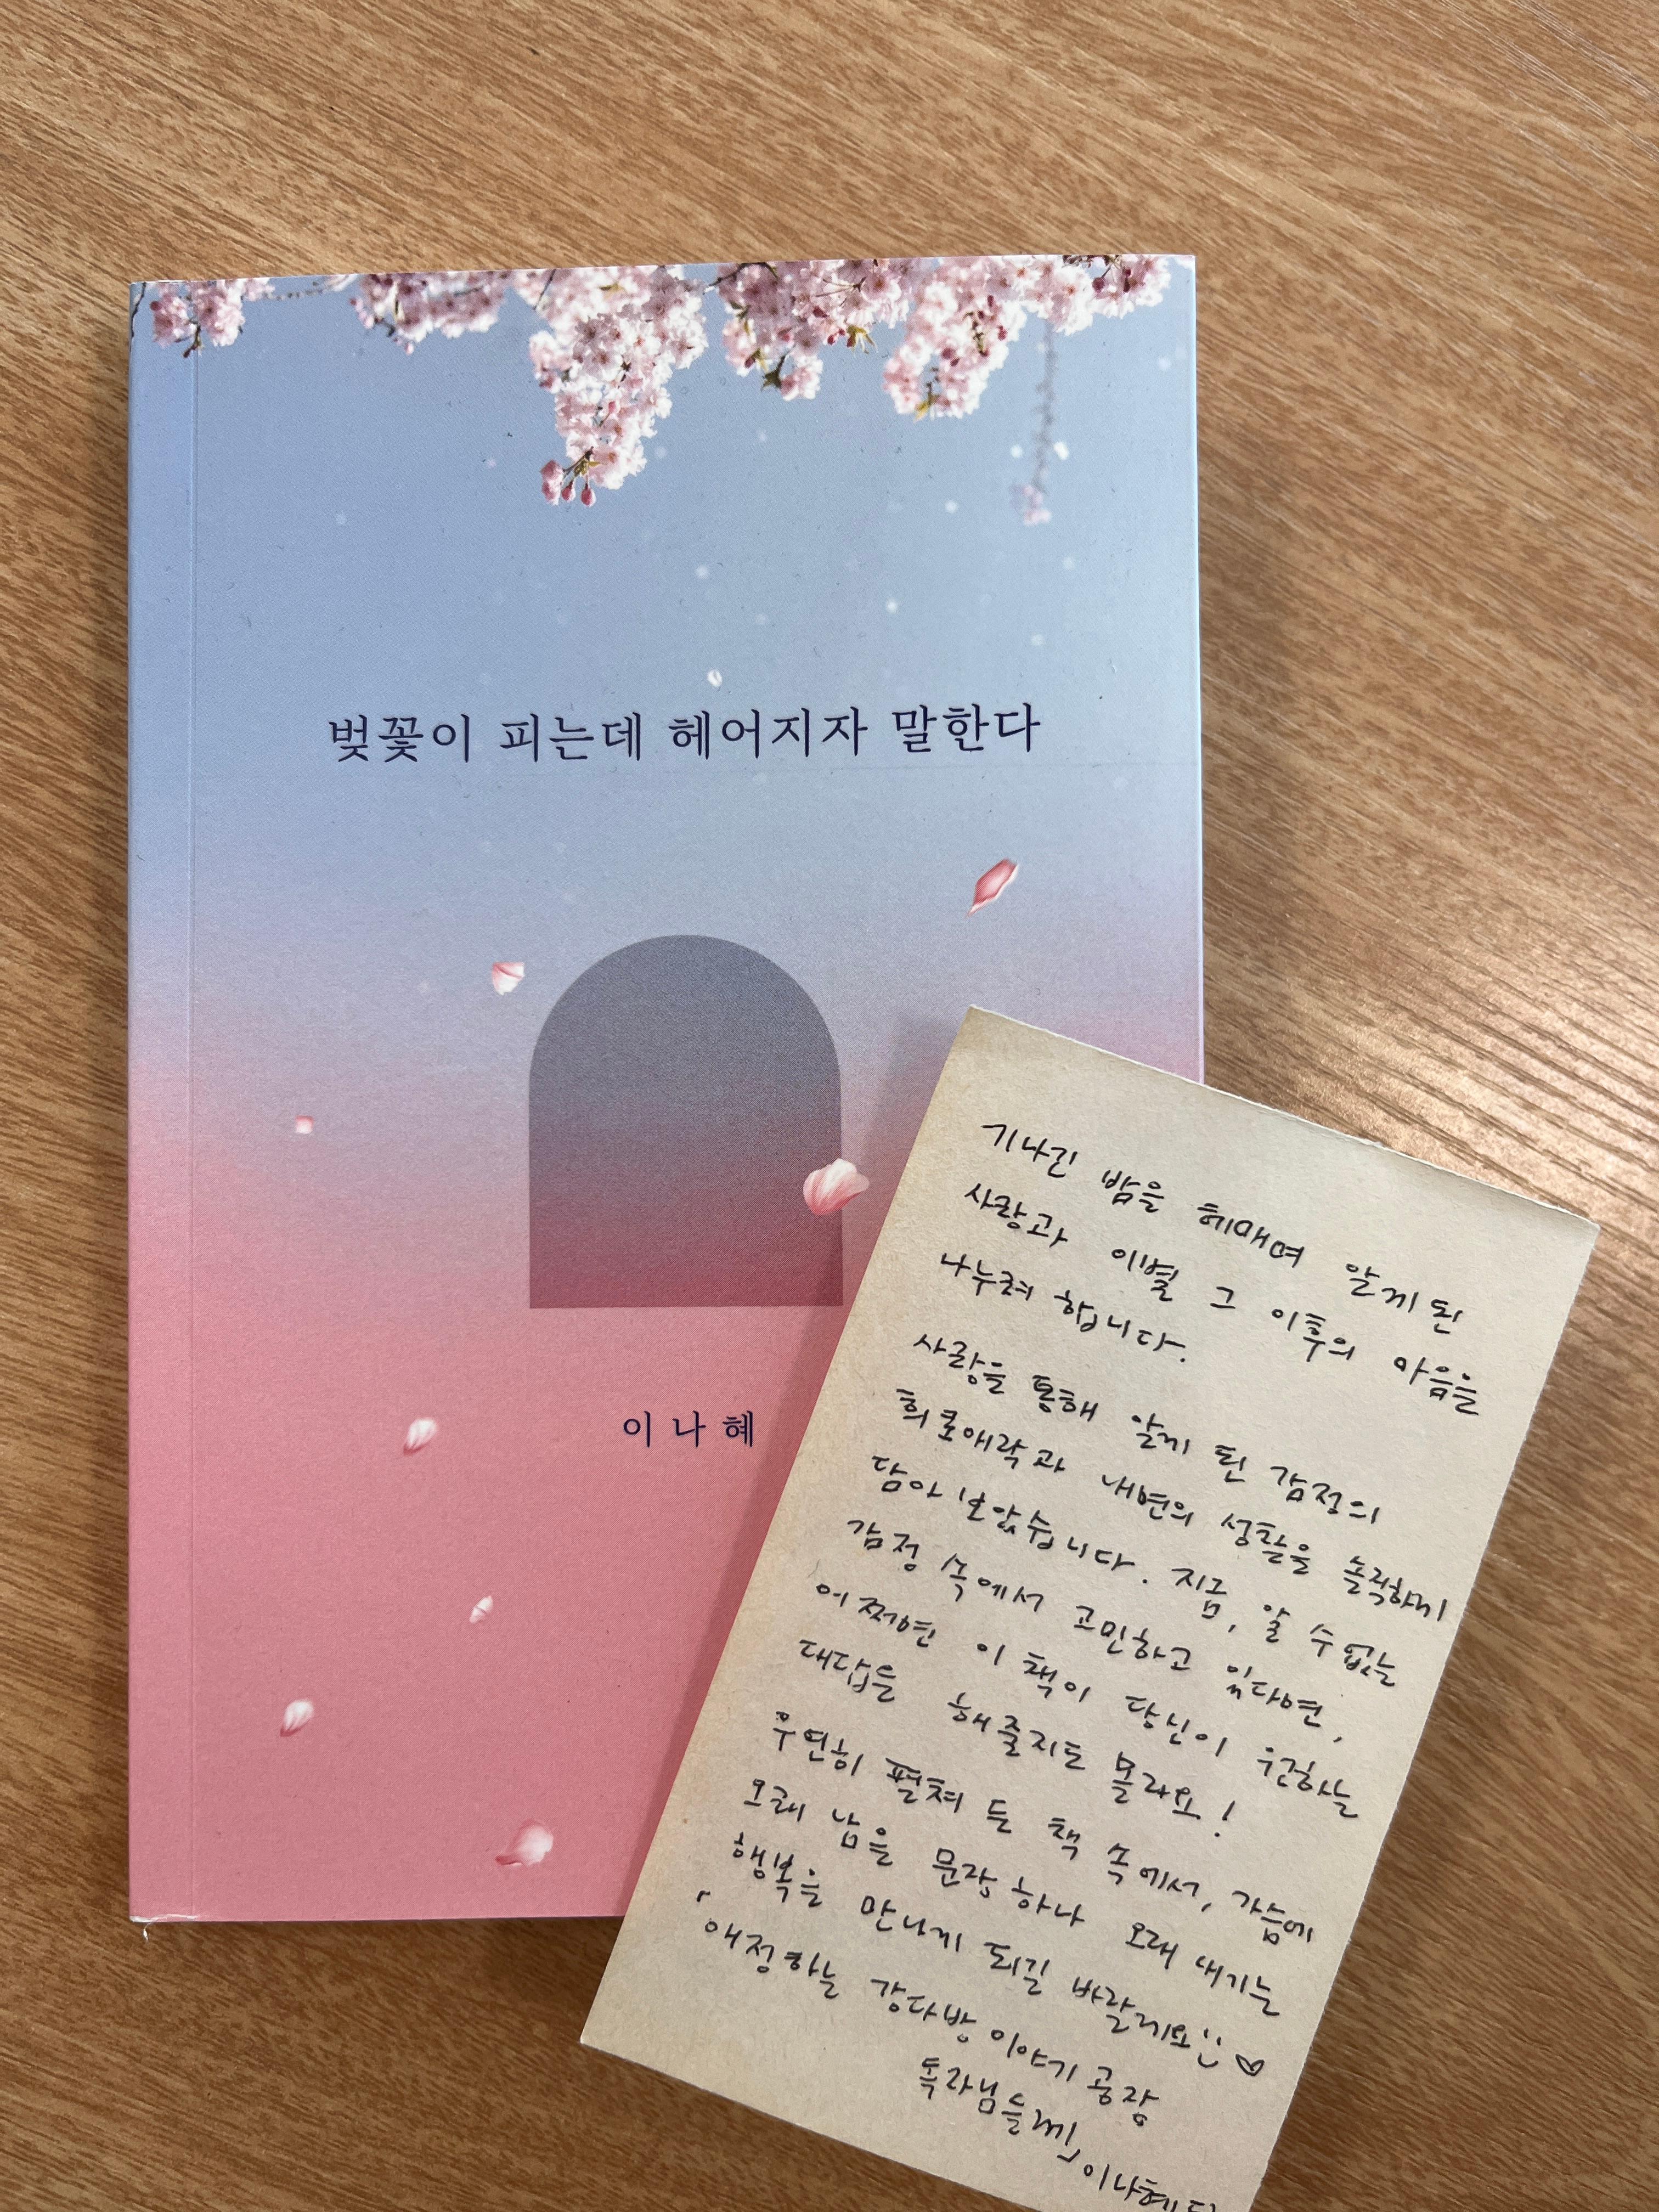 벚꽃이 피는데 헤어지자 말한다
이나혜
기나긴 밤을 헤매며 알게된
사랑과 이별 그 이후의 마음을
나누려 합니다.
사랑을 통해 알게 된 감정의
희로애락과 내면의 성찰을 솔직하게
담아 보았습니다. 지금, 알 수 없는
감정 속에서 고민하고 있다면,
어쩌면 이 책이 당신이 원하는
대답을 해줄지도 몰라요!
우연히 펼쳐 든 책 속에서, 가슴에
오래 남을 문장 하나 오래 새기는
행복을 만나게 되길 바랄게요 :) ♡
「애정하는 강다방 이야기 공장
독자님들께」
이나혜